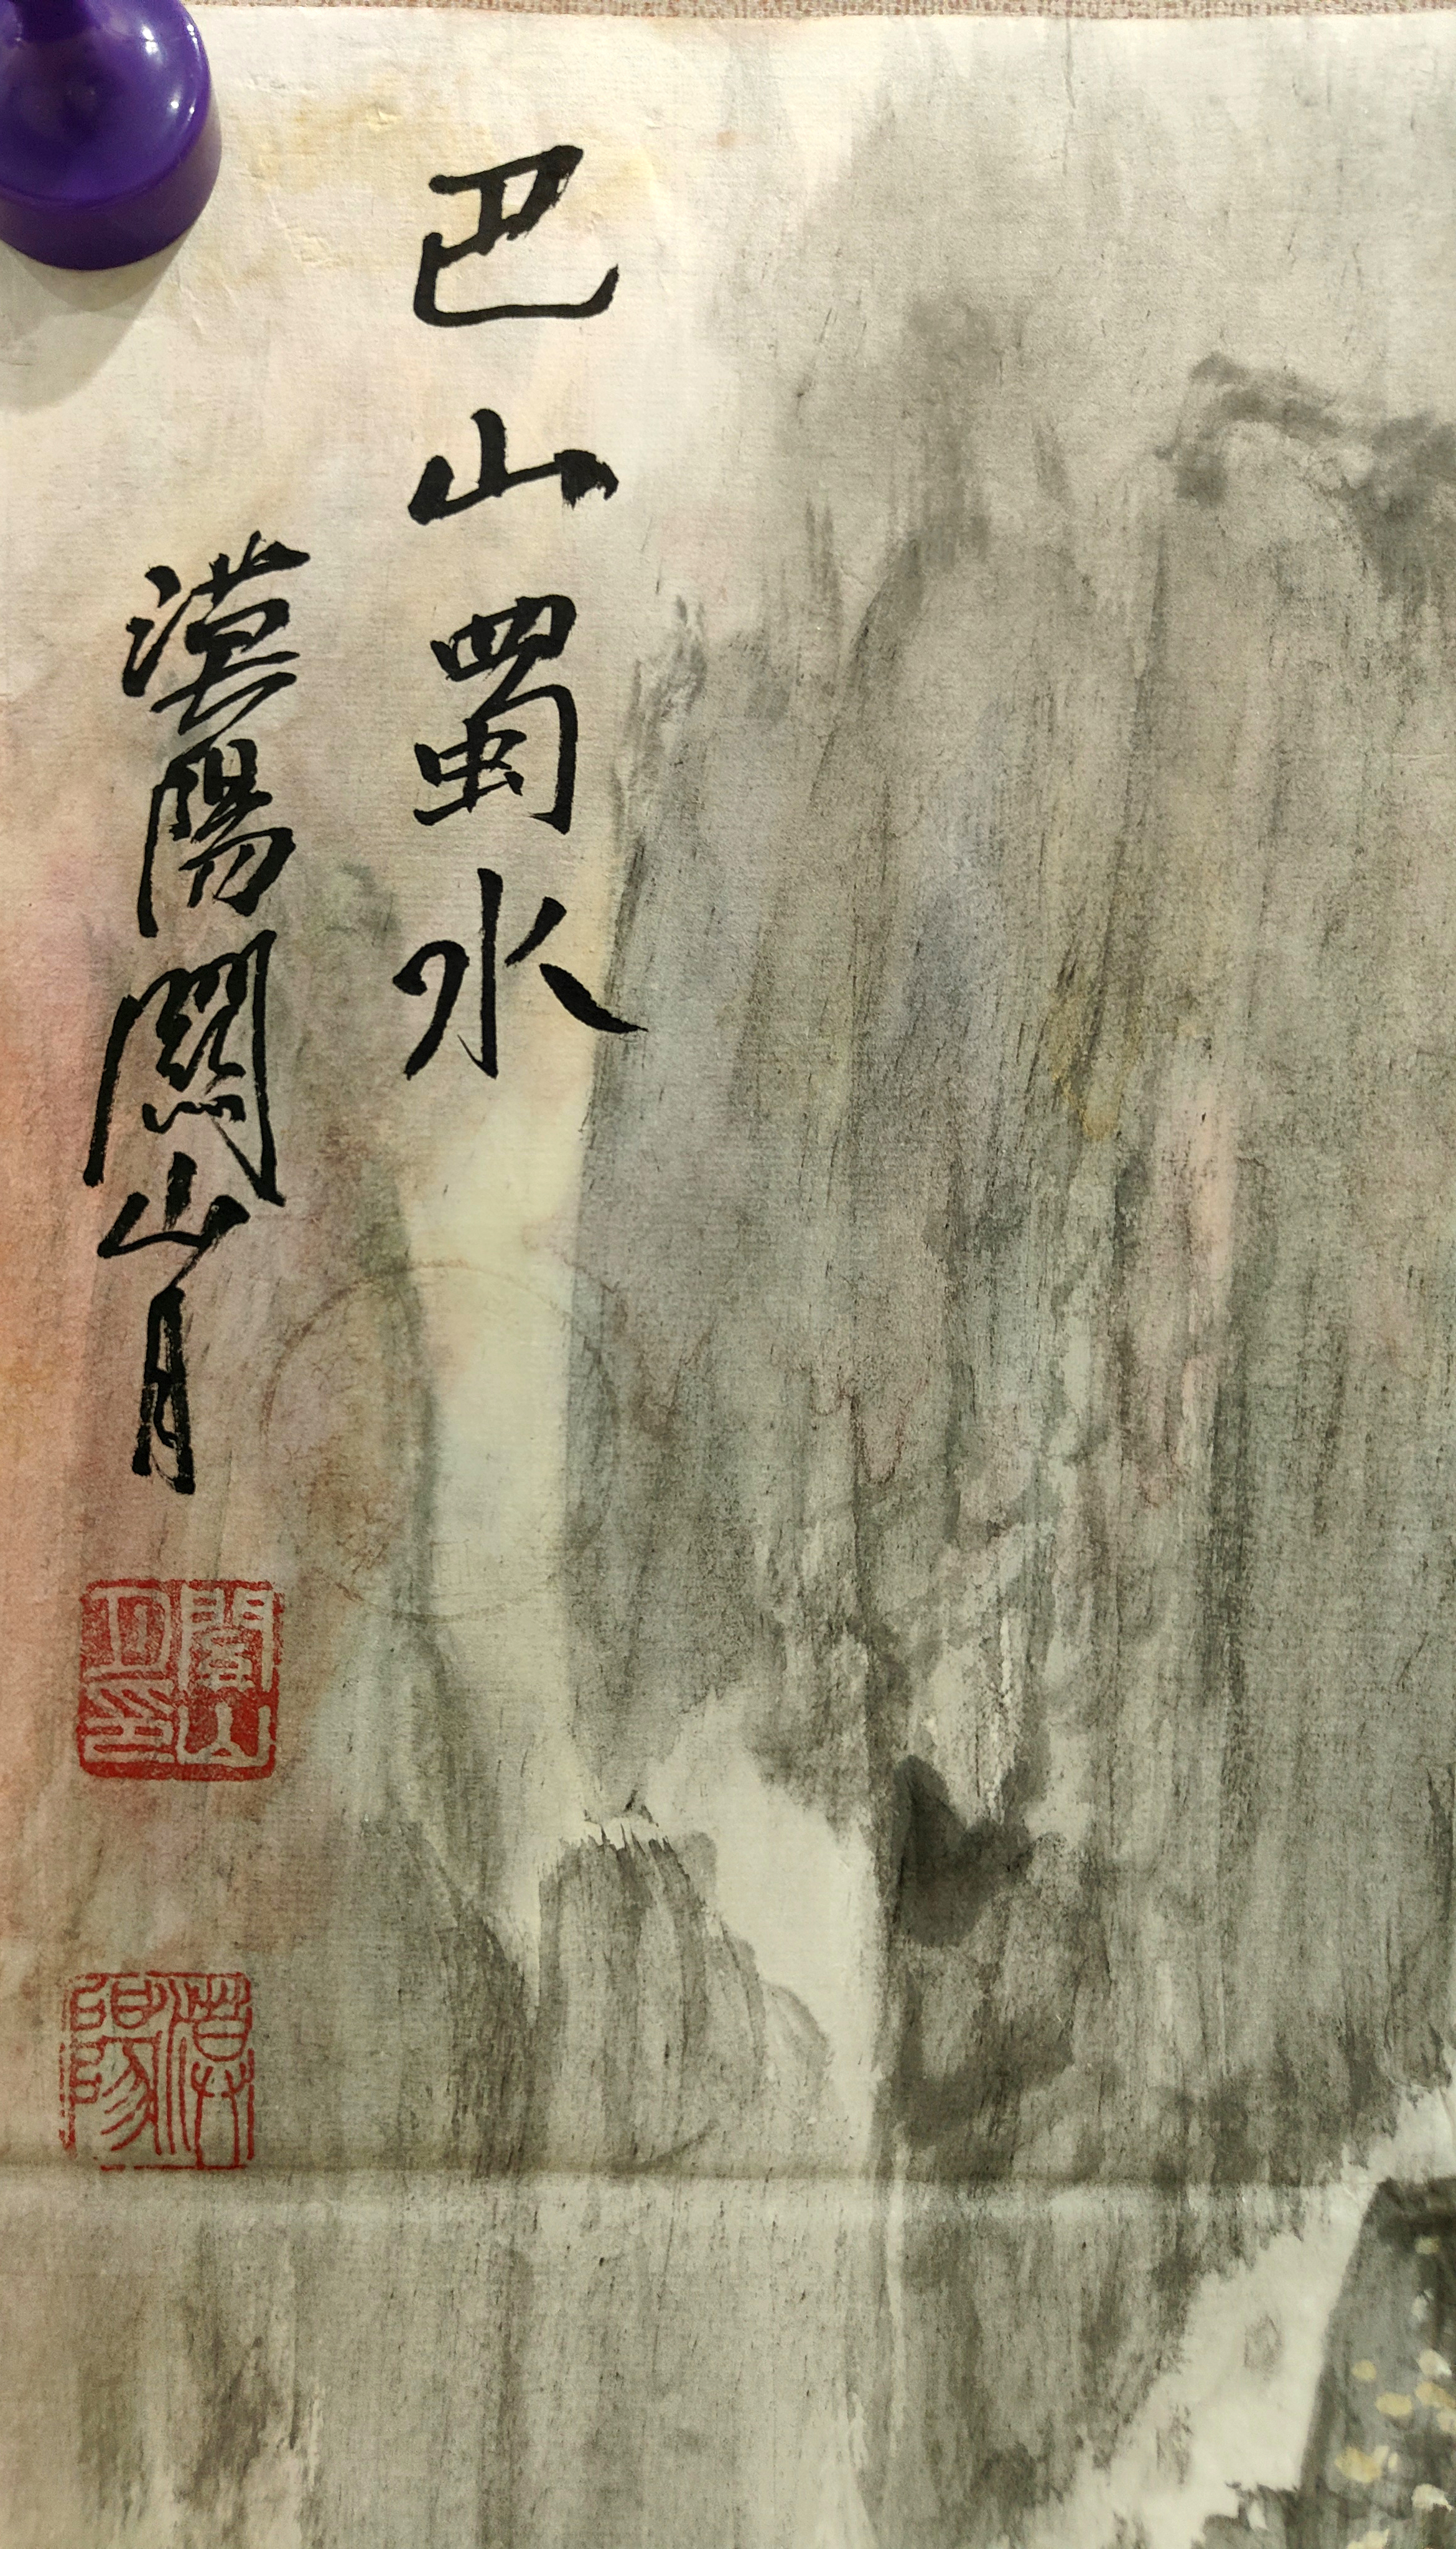 巴山蜀水
漠陽關山月
關山
月印
漠
陽